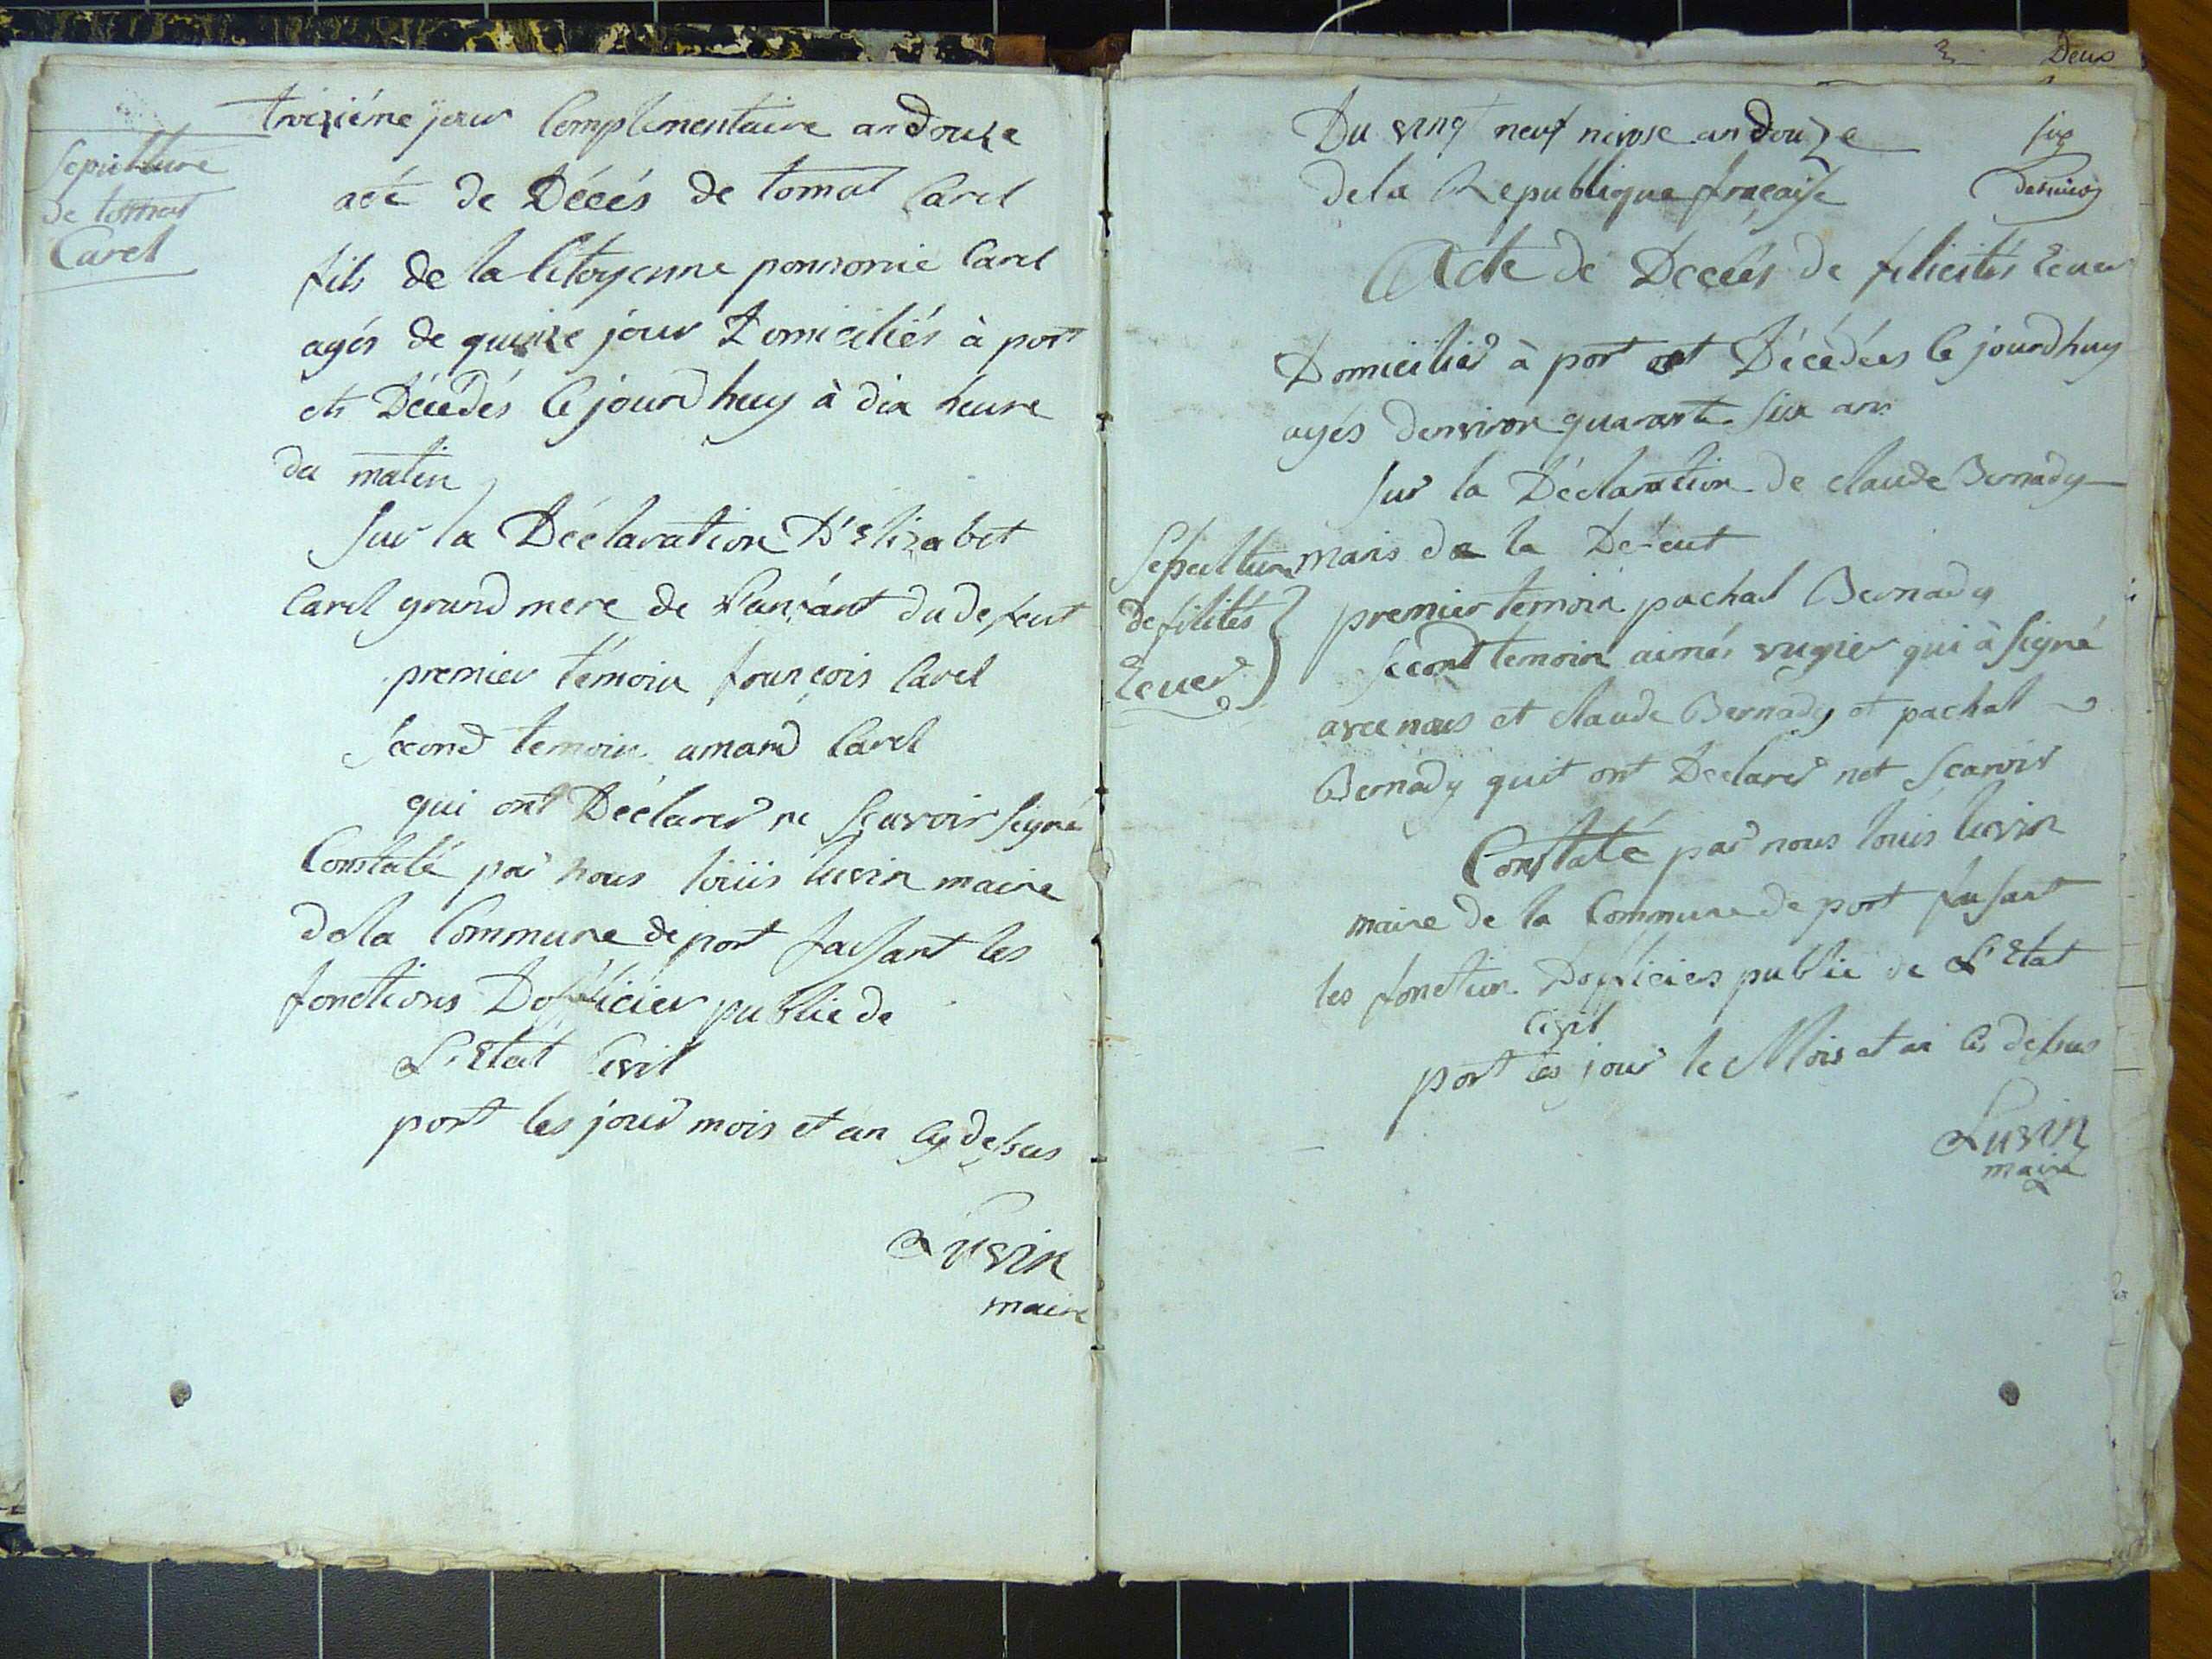 Sepulture
de tomat
Carel
troizième jour Complimentaire an douze
acte de Décés de tomat Carel
fils de la Citoyenne ponsonie Carel
agés de quinze jour Domiciliés à port
et Décédés Ce jourdhuy à dix heure
du matin
Sur la Déclaration D'Elizabet
Carel grand mere de L'anfant du defeut
premier témoin françois Carel
Second temoin amand Carel
qui ont Déclarer ne Scavoir signé
Constaté par nous louis luvin maire
de la Commune de port faisant les
fonctions Dofficier public de
L'Etat Civil
port les jour mois et an cy desus
Luvin
maire
Deux
Du vingt neuf nivose an douze
de la Republique française
six
dernier
Acte de Décés de félicités
Domicilier à port et Décédées Ce jourdhuy
agés denviron quarante six ans
Sur la Déclaration de claude Bernady
maris de la Défeut
Sepulture
de filités
premier temoin pachal Bernady
Second temoin aimés rugier qui à Signé
avec nous et claude Bernady et pachal
Bernady quit ont Declarer net Scavoir
Constaté par nous louis luvin
maire de la Commune de port faisant
les fonction Dofficier public de L'Etat
Civil
port les jour le Mois et an cy desus
Luvin
maire